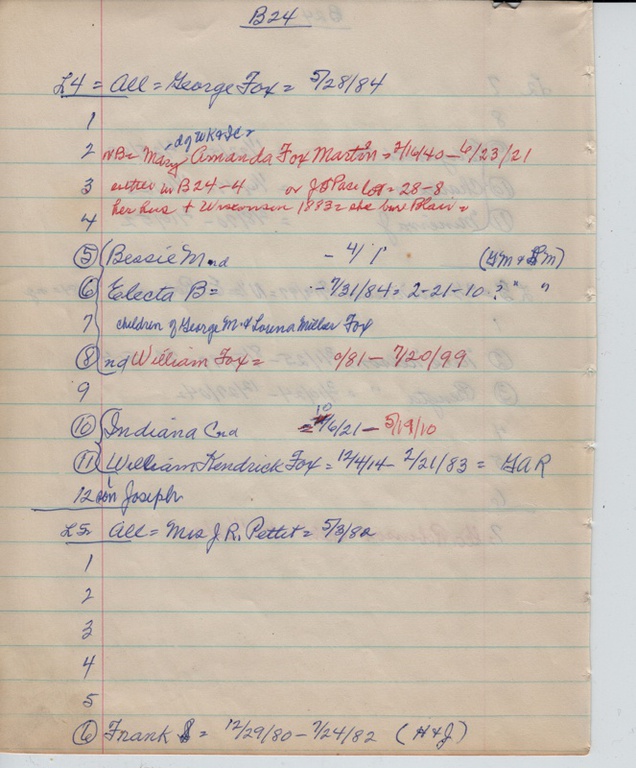 B24
L4 = All = George Fox = 5/28/84
1
d of WK & IC
2 NB = Mary Amanda Fox Martin = 2/16/40 - 6/23/21
3 either in B24-4 or J Pase Lot = 28-8
her hus + Wisconsin 1883 = she bur Blair =
4
5 Bessie M nd - 4/ / (GM & LM)
6 Electa B = - 7/31/84 = 2-21-10 ? " "
7 children of George M & Louna Miller Fox
8 nd William Fox = 9/81 - 7/20/99
9
10 Indiana C nd = 10/6/21 - 5/19/10
11 William Kendrick Fox = 12/4/14 - 2/21/83 = GAR
12 son Joseph
L5 = All = Mrs J. R. Pettet = 5/3/82
1
2
3
4
5
6 Frank S = 12/29/80 - 7/24/82 (H & J)